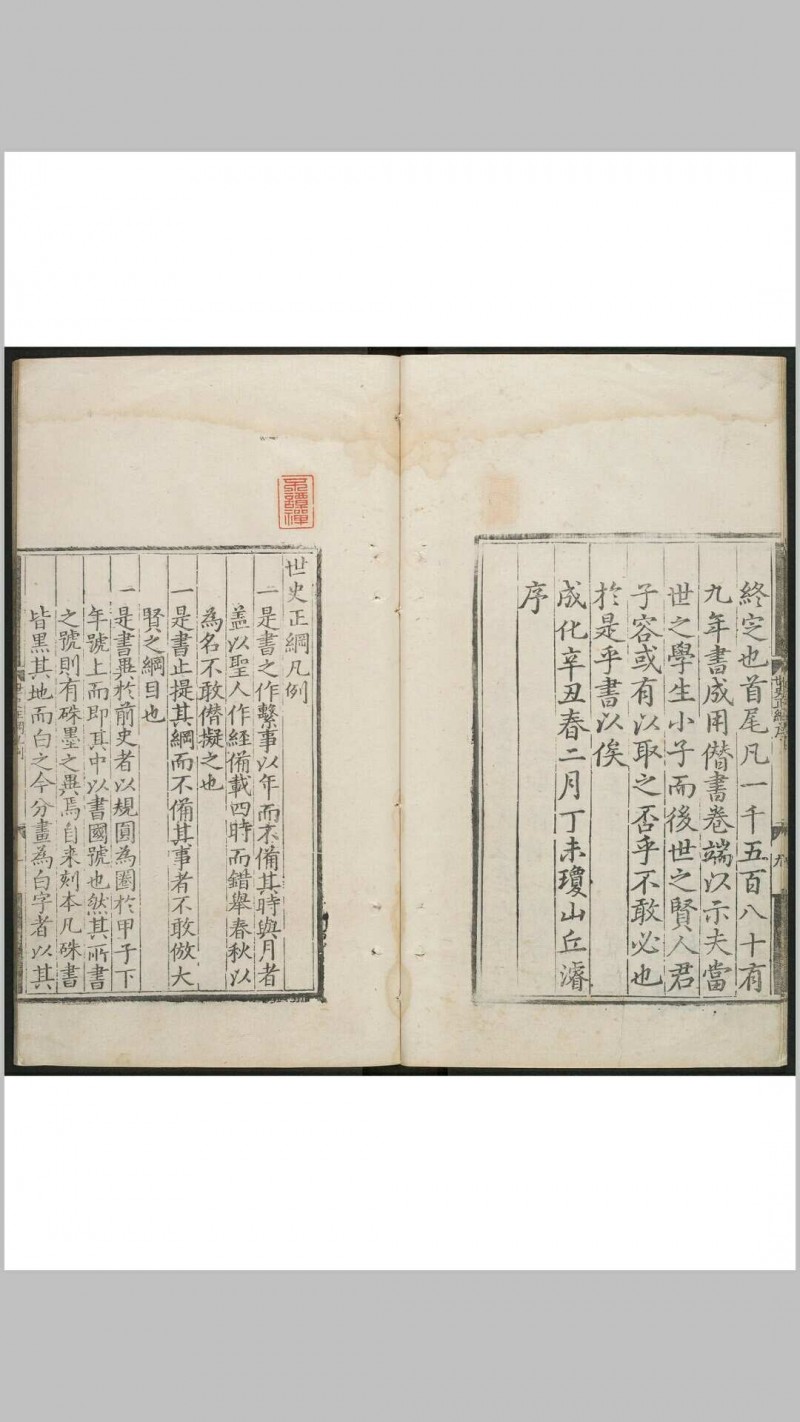 終定也首尾凡一千五百八十有
九年書成用僣書卷端以示夫當
世之學生小子而後世之賢人君
子容或有以取之否乎不敢必也
於是乎書以俟
成化辛丑春二月丁未瓊山丘濬
序
世史正綱凡例
一是書之作繫事以年而不備其時與月者
盖以聖人作經備載四時而錯舉春秋以
為名不敢僣擬之也
一是書止提其綱而不備其事者不敢倣大
賢之綱目也
一是書異於前史者以規圓為圈於甲子下
年號上而即其中以書國號也然其所書
之號則有硃墨之異焉自来刻本凡硃書
皆黑其地而白之今分畫為白字者以其